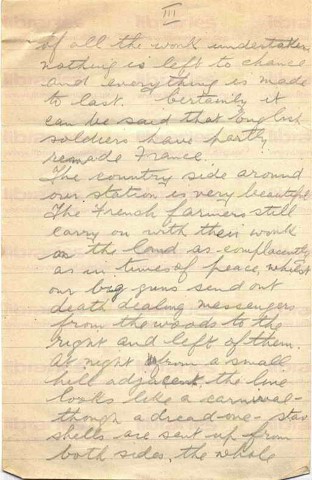 III
of all the work undertaken
nothing is left to chance
and everything is made
to last. Certainly it
can be said that English
soldiers have partly
remade France.
The country side around
our station is very beautiful
The French farmers still
carry on with their work
on the land as complacently
as in times of peace, whilst
our big guns send out
death dealing messengers
from the woods to the
right and left of them.
At night from a small
hill adjacent, the line
looks like a carnival-
though a dread one - star
shells are sent up from
both sides, the whole